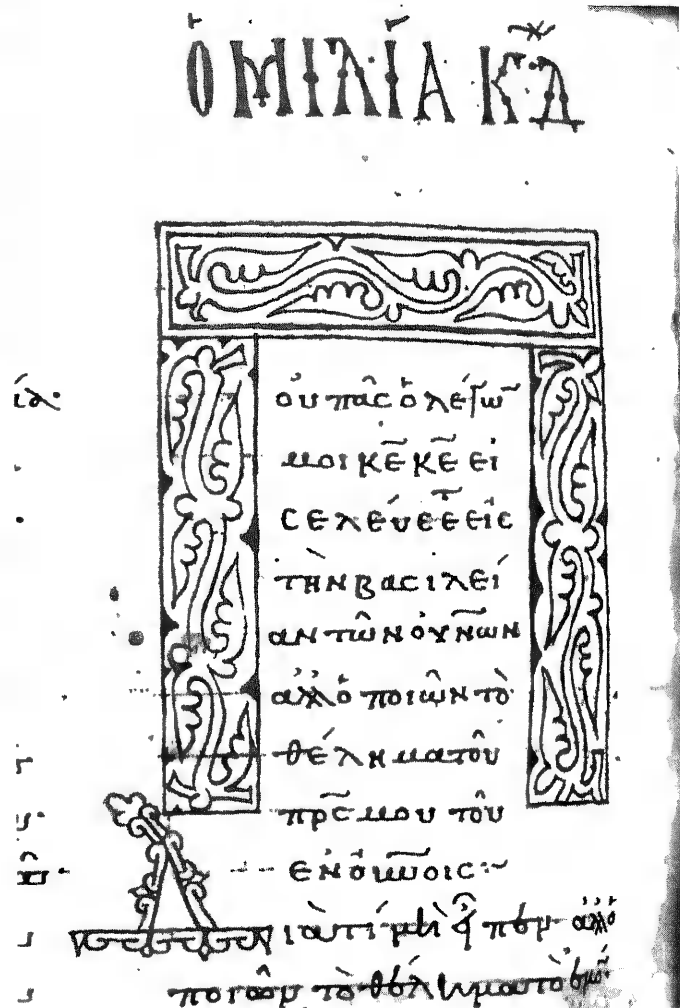 ὉΜΙΛΊΑ ΚΔ
οὐ πᾶς ὁ λέγων
μοι κε κε εἰ
σελεύσεται εἰς
τὴν βασιλεί
αν τῶν οὐνων
ἀλλ ὁ ποιῶν τὸ
θέλημα τοῦ
πρς μου τοῦ
ἐν οὐνοις
Διὰ τί μὴ
ποιῶν τὸ θέλημα τὸ